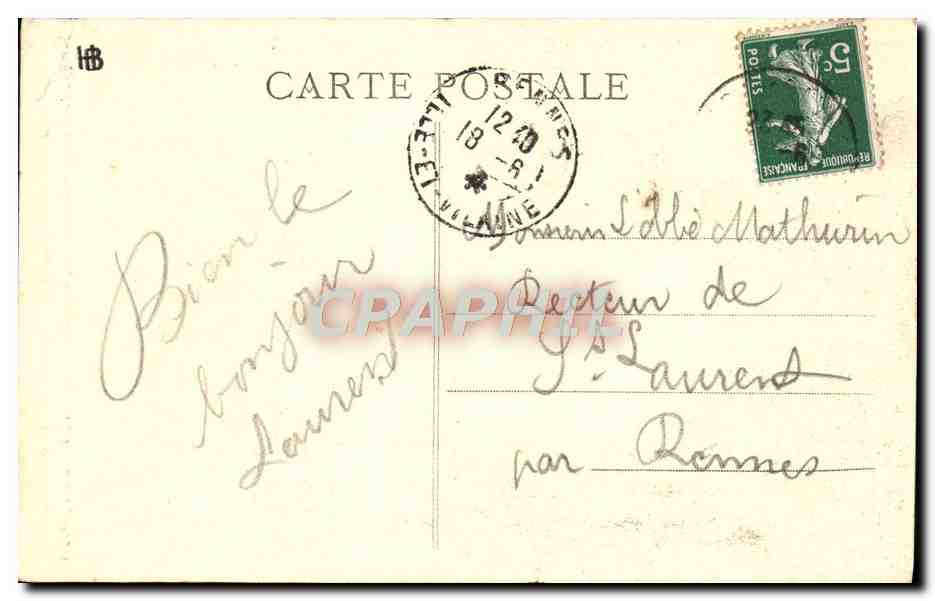 HB
CARTE POSTALE
RENNES
ILLE-ET-VILAINE
12 40
18 -6
5c
POSTES
REPUBLIQUE FRANÇAISE
Bien le
bonjour
Laurent
Monsieur L'abbé Mathurin
Recteur de
St. Laurent
par Rennes
CPAPHIL